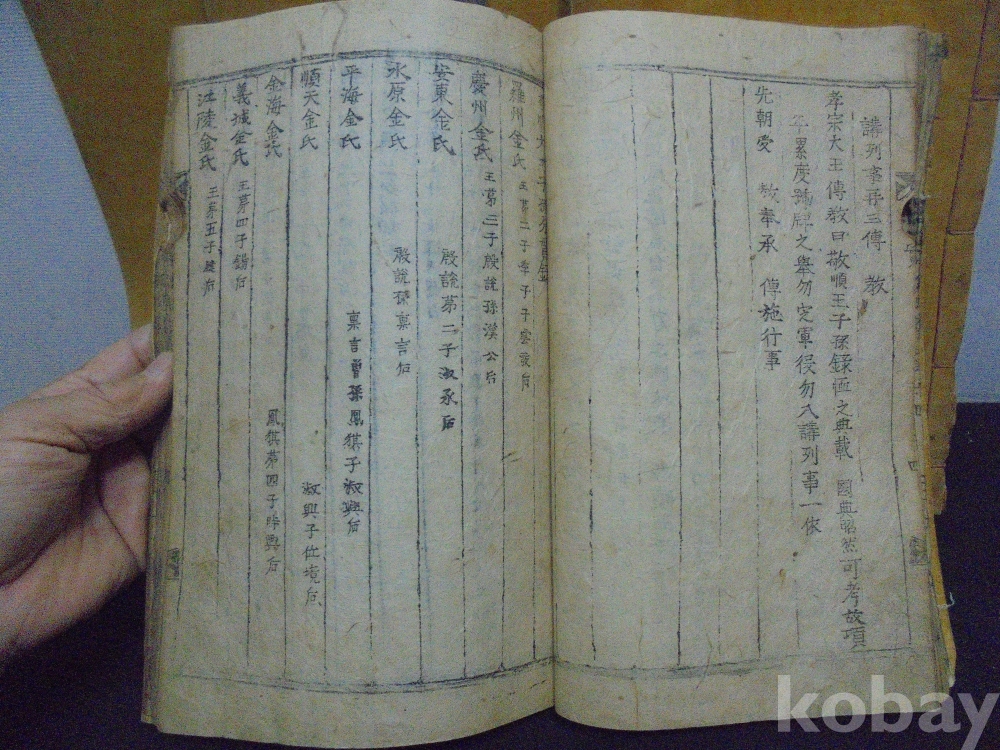 講列事再三傳 教
孝宗大王傳教曰敬順王子孫錄恤之典載 國典昭然可考故項
年累度號牌之舉勿定軍役勿入講列事一依
先朝受 教奉承 傳施行事
羅州金氏 王第二子 子
慶州金氏 王第三子殷說孫漢公后
安東金氏 殷說第二子淑承后
永原金氏 殷說孫稟言后
平海金氏 稟言曾孫鳳猉子淑興后
順天金氏 淑興子位境后
金海金氏 鳳猉第四子時興后
義城金氏 王第四子錫后
江陵金氏 王第五子 后
kobay